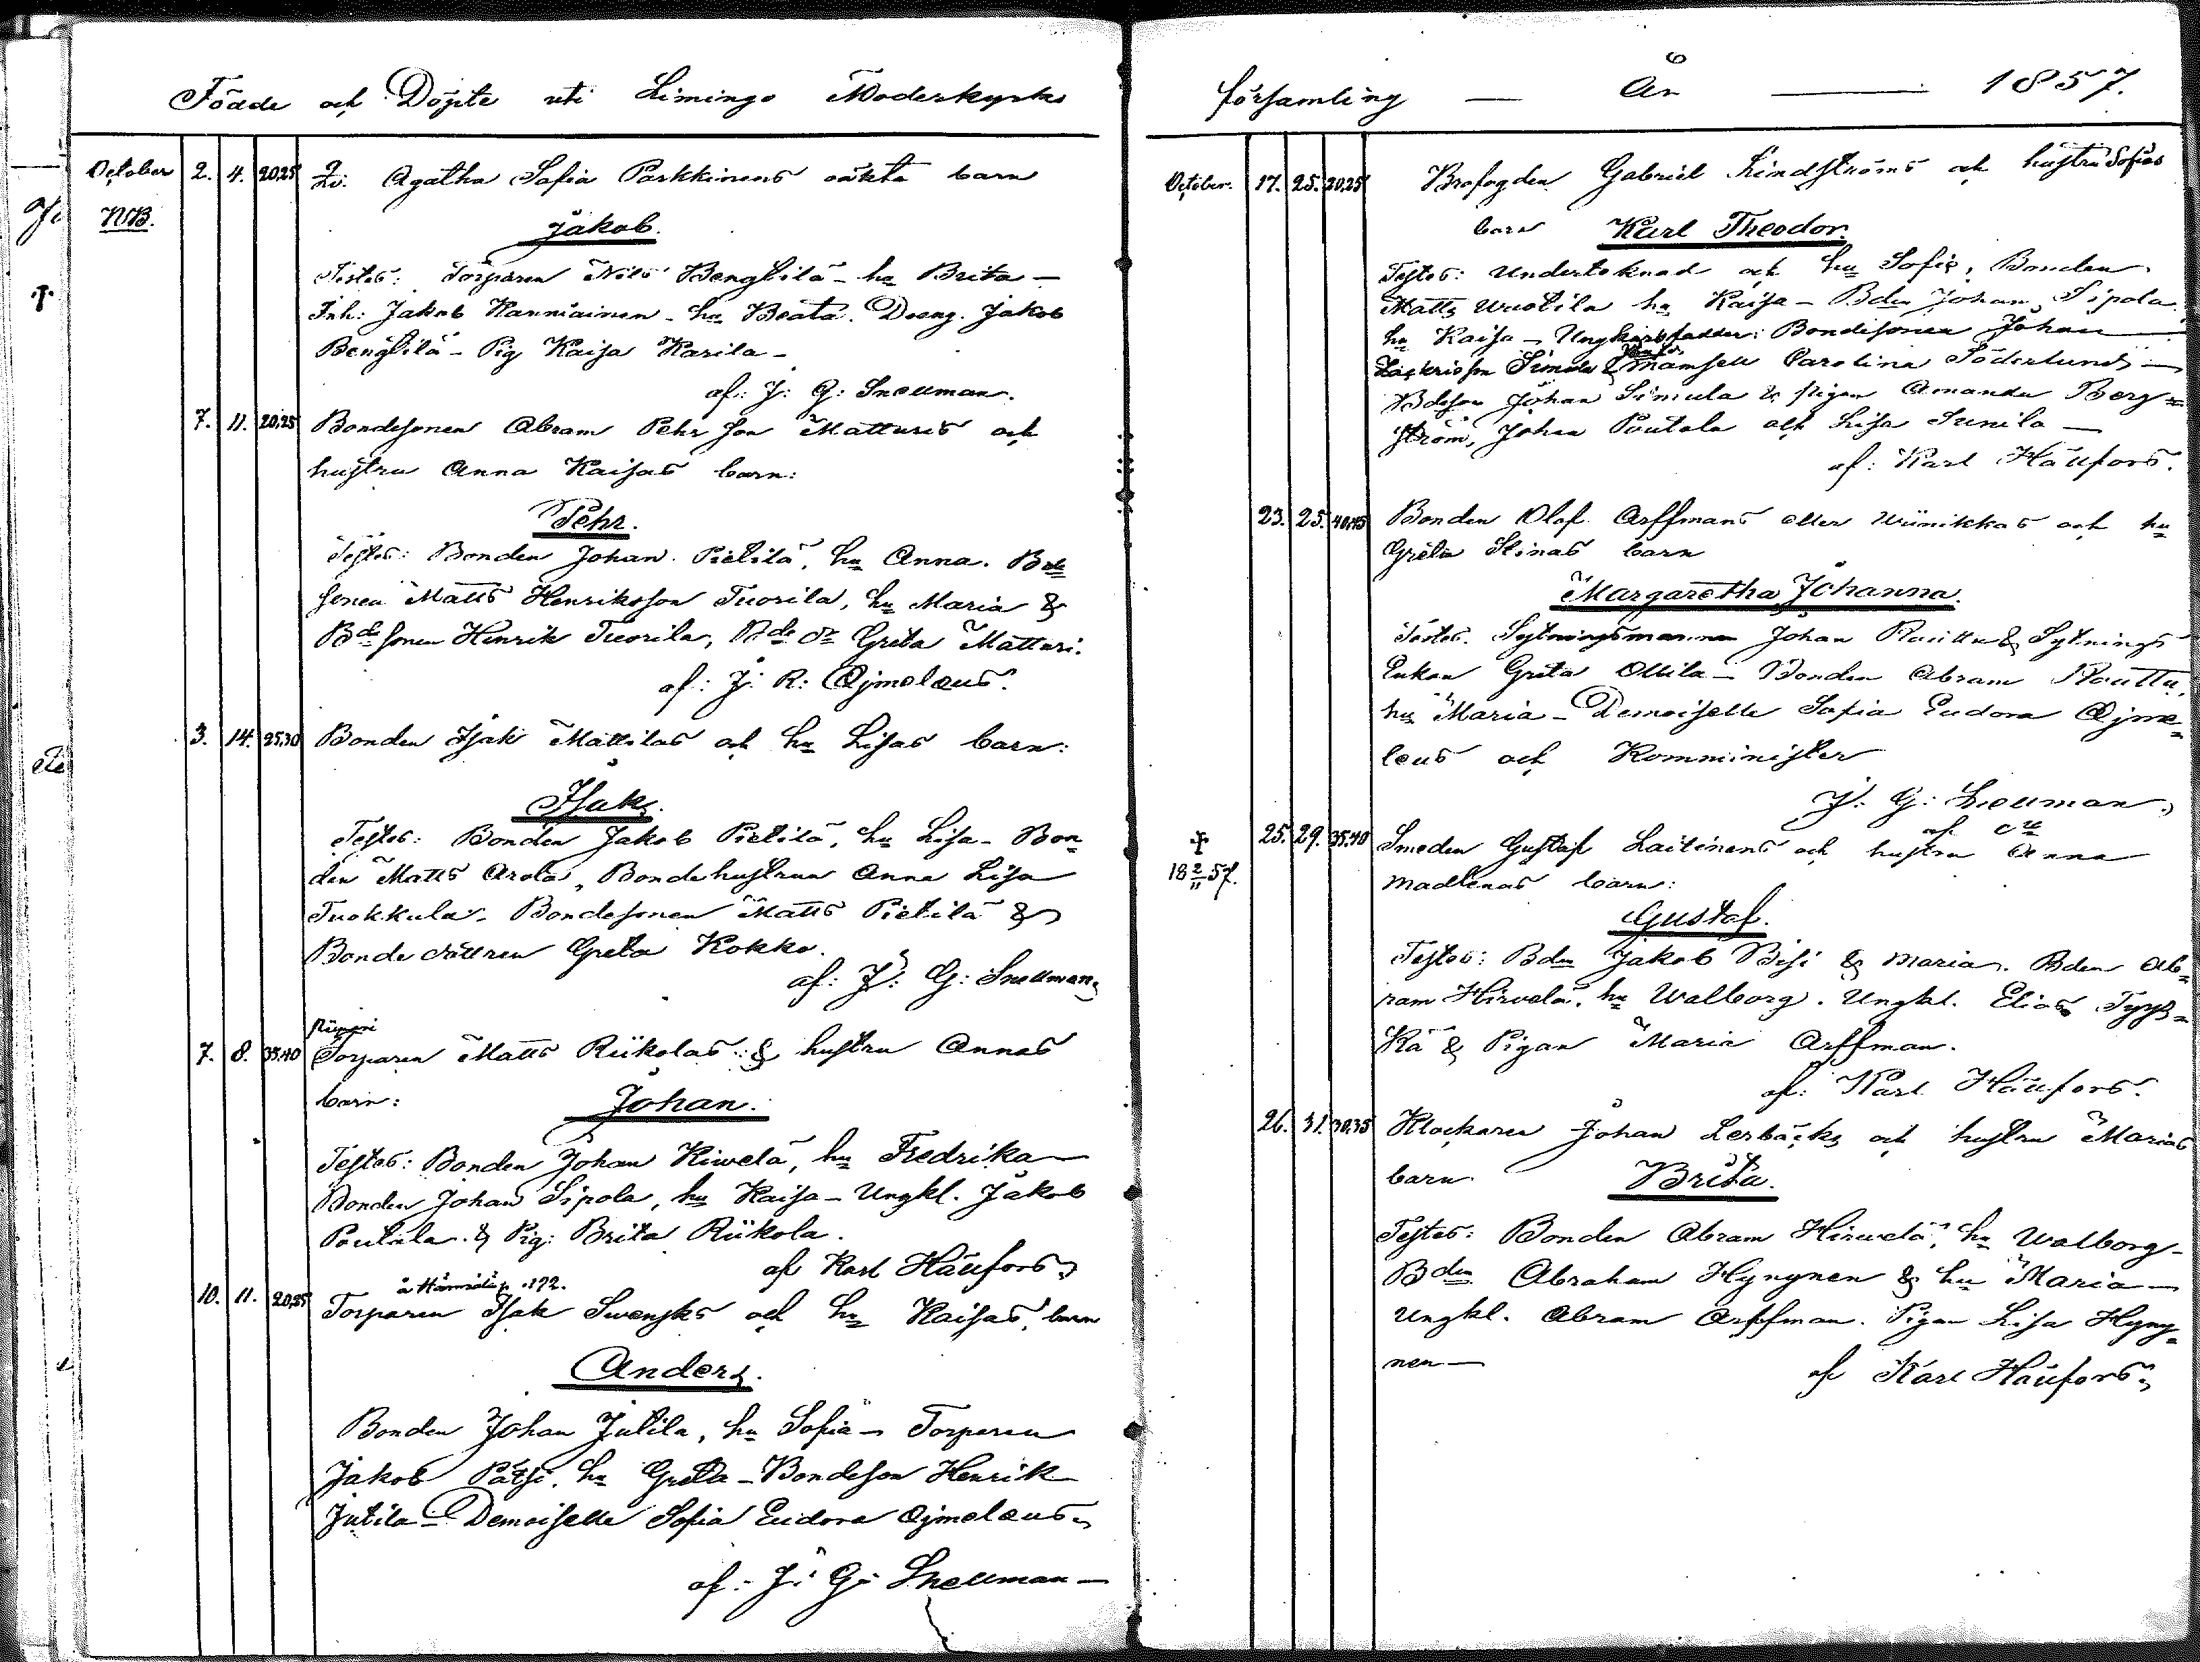 Födde och Döpte uti Limingo Moderkyrko
October 2. 4. 20,25 Agatha Sofia Parkkinens oäkta barn
NB. Jakob.
Testes: Torparen Nils Bengtilä - hu Brita -
Inh: Jakob Hanniainen - hu Beata. Dreng. Jakob
Bengtilä - Pig Kaisa Karila -
af: J: G: Snellman.
7. 11. 20,25 Bondesonen Abram Pehrson Matturis och
hustru Anna Kaisas barn:
Pehr.
Testes: Bonden Johan Pietilä, hu Anna. Bde
sonen Matts Henriksson Tuorila, hu Maria &
Bde sonen Henrik Tuorila, Bde dr Greta Matturi.
af: J: R: Ajmelæus.
3. 14. 25,30 Bonden Isak Mattilas och hu Lisas barn:
Isak.
Testes: Bonden Jakob Pietilä, hu Lisa - Bon=
den Matts Arola, Bondehustrun Anna Lisa
Tuokkula - Bondesonen Matts Pietilä &
Bondedottren Greta Kokko.
af: J: G: Snellman
7. 8. 35,40 Torparen Matts Riikolas & hustru Annas
barn: Johan.
Testes: Bonden Johan Hirvelä, hu Fredrika
Bonden Johan Sipola, hu Kaisa - Ungkl. Jakob
Poutala & Pig: Brita Riikola.
af Karl Häufors
10. 11. 20,25 Torparen Isak Swensks och hu Kaisas barn
Anders.
Bonden Johan Jutila, hu Sofia - Torparen
Jakob Pätsi, hu Greta - Bondeson Henrik
Jutila - Demoiselle Sofia Eudora Ajmelæus
af: J: G: Snellman -
församling - År - 1857.
October. 17. 25. 20,25 Brofogden Gabriel Lindströms och hustru Sofias
barn Karl Theodor.
Testes: Underteknad och hu Sofie, Bonden
Matts Wuotila hu Kaisa - Bden Johan Sipola
hu Kaisa - Bondesonen Johan
Simula & Mamsell Carolina Söderlund -
Bdeson Johan Simula & pigan Amanda Berg=
ström, Johan Poutala och Lisa Junila -
af: Karl Häufors.
23. 25. 40,45 Bonden Olof Arffmans eller Wiinikkas och hu
Greta Stinas barn
Margaretha Johanna.
Testes. Sytningsmannen Johan Rautta & Sytnings
Enkan Greta Ollila - Bonden Abram Rautta,
hu Maria - Demoiselle Sofia Eudora Ajme=
læus och Komminister
J: G: Snellman
25. 29. 35,40 Smeden Gustaf Laitinens och hustru Anna
18 2/11 57. Madlenas barn:
Gustaf.
Testes: Bden Jakob Bisi & Maria. Bden Ab=
ram Hirvelä, hu Walborg. Ungkl. Elias Tyys=
kä & Pigan Maria Arffman.
af: Karl Häufors.
26. 31. 30,35 Klockaren Johan Lerbäcks och hustru Marias
barn Brita.
Testes: Bonden Abram Hirvelä, hu Walborg -
Bden Abraham Hyngnen & hu Maria -
Ungkl. Abram Arffman. Pigan Lisa Hyng=
nen -
af Karl Häufors